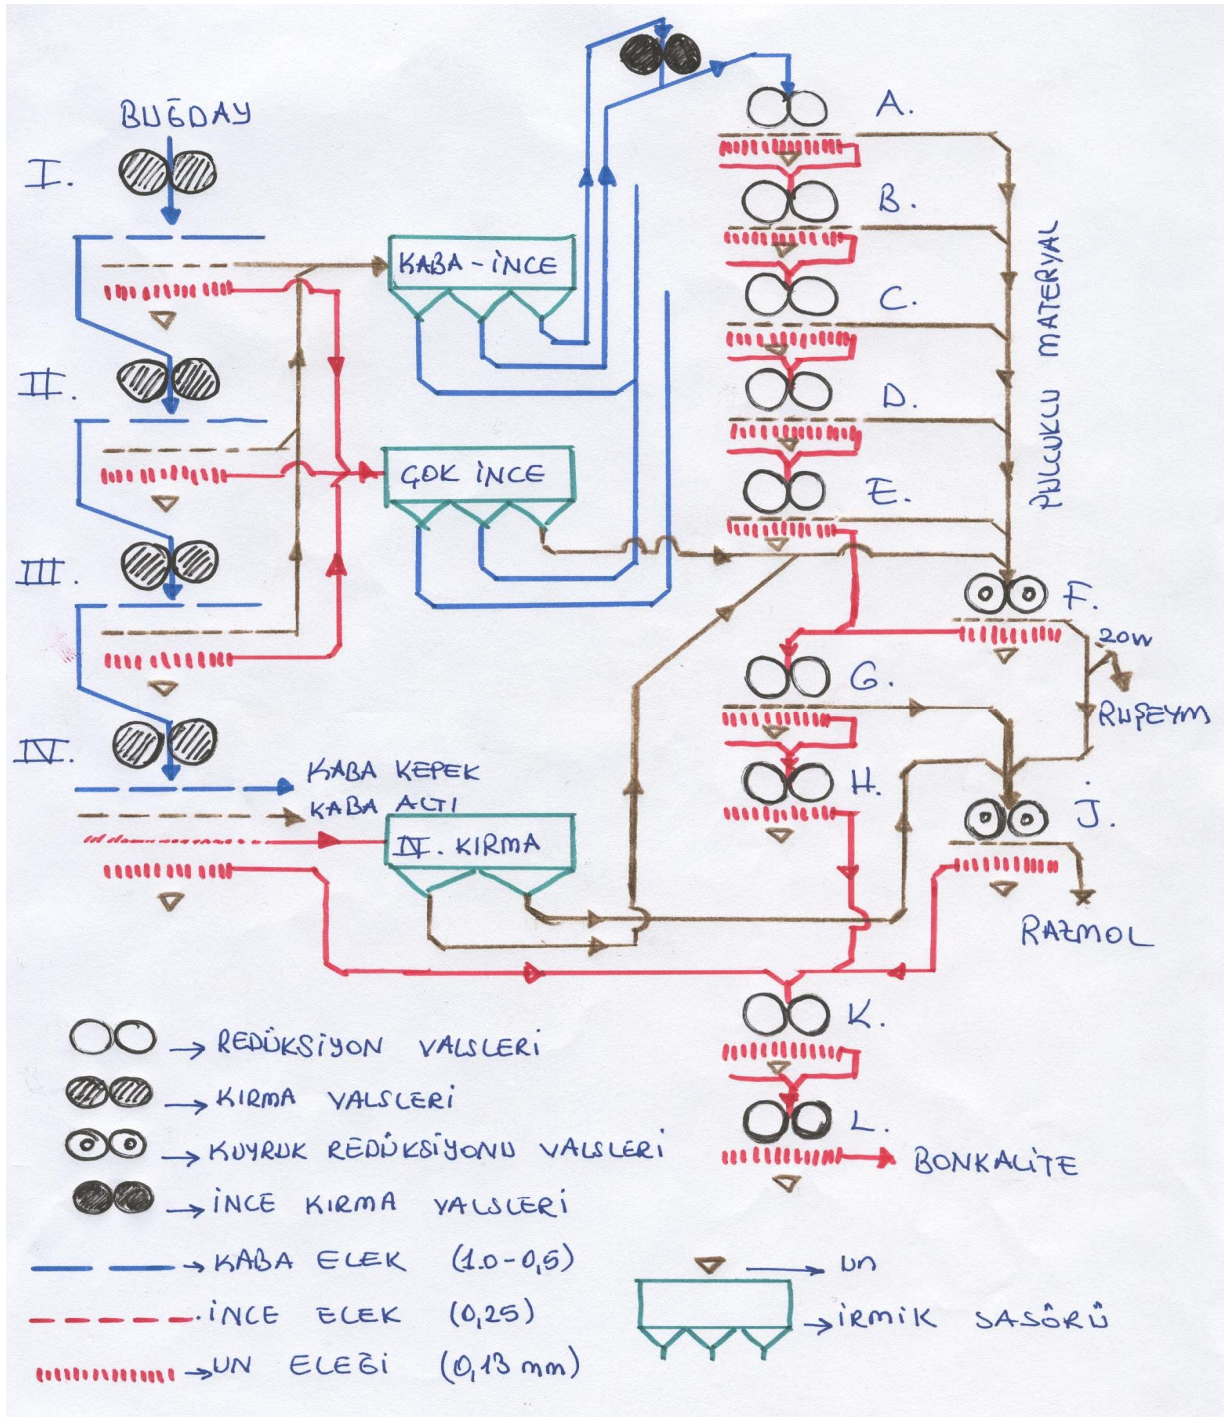 BUĞDAY
I.
II.
III.
IV.
KABA-İNCE
ÇOK İNCE
KABA KEPEK
KABA ALTI
IV. KIRMA
A.
B.
C.
D.
E.
F.
G.
H.
J.
K.
L.
PULCUKLU MATERYAL
20W
RUŞEYM
RAZMOL
BONKALİTE
REDÜKSİYON VALSLERİ
KIRMA VALSLERİ
KUYRUK REDÜKSİYONU VALSLERİ
İNCE KIRMA VALSLERİ
KABA ELEK (1.0-0,5)
İNCE ELEK (0,25)
UN ELEĞİ (0,13 mm)
UN
İRMİK SASÖRÜ